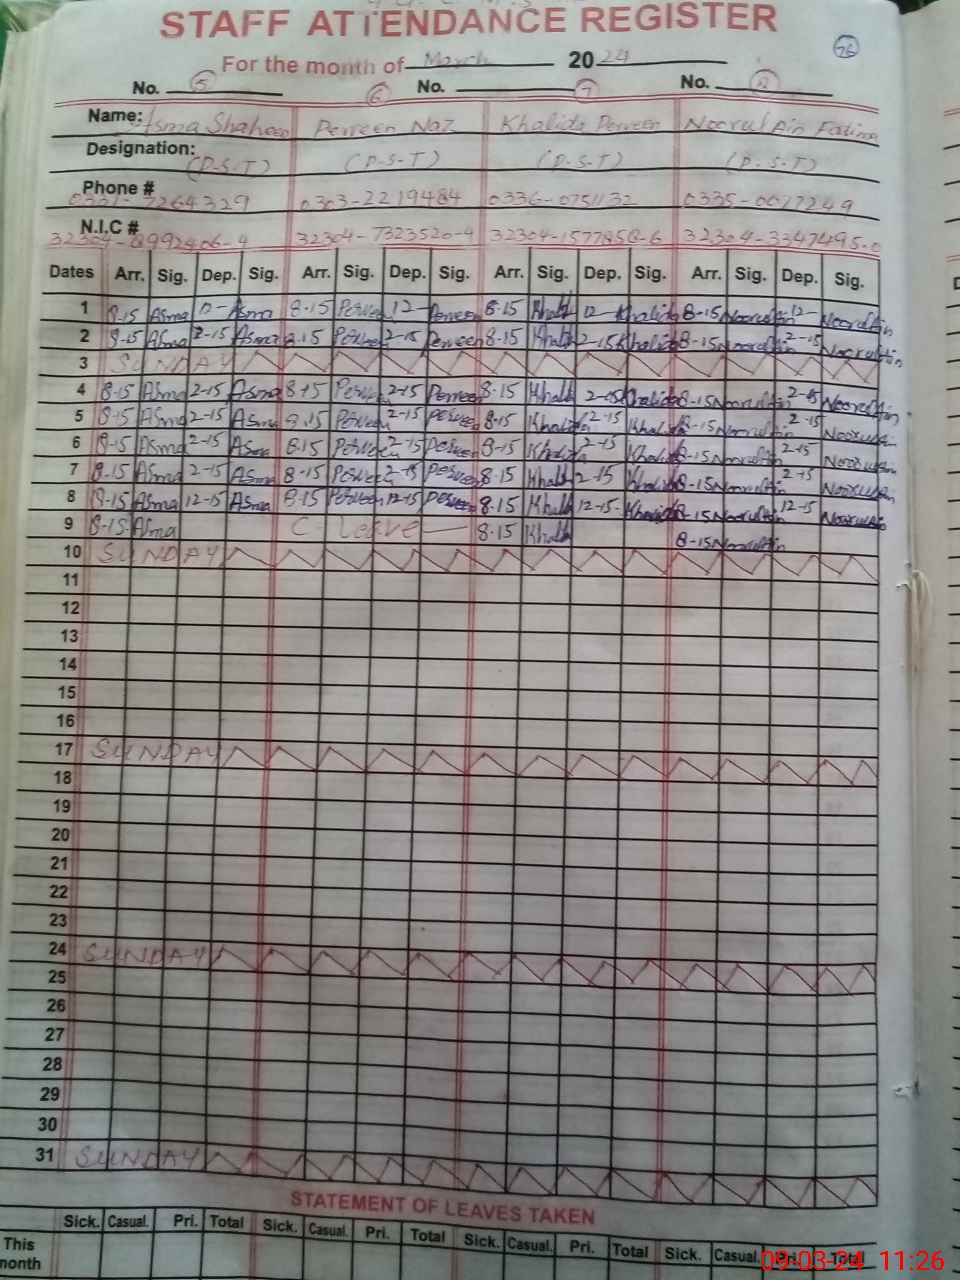 STAFF ATTENDANCE REGISTER
76
For the month of March 2024
No. 5 6 No. 7 No. 8
Name: Asma Shaheen Perveen Naz Khalida Perveen Noorul Ain Fatima
Designation: (P-S-T) (P-S-T) (P-S-T) (P-S-T)
Phone # 0331-7264329 0303-2219484 0336-0751132
N.I.C # 32304-7323520-4
Dates Arr. Sig. Dep. Sig. Arr. Sig. Dep. Sig. Arr. Sig. Dep. Sig. Arr. Sig. Dep. Sig.
1 8-15 Asma 12- Asma 8-15 Perveen 12- Perveen 8-15 Khalid 12- Khalida 8-15 Noorul Ain 12- Noorul Ain
2 8-15 Asma 2-15 Asma 8-15 Perveen 2-15 Perveen 8-15 Khalid 2-15 Khalida 8-15 Noorul Ain 2-15 Noorul Ain
3 SUNDAY
4 8-15 Asma 2-15 Asma 8-15 Perveen 2-15 Perveen 8-15 Khalid 2-15 Khalida 8-15 Noorul Ain 2-15 Noorul Ain
5 8-15 Asma 2-15 Asma 8-15 Perveen 2-15 Perveen 8-15 Khalida 2-15 Khalida 8-15 Noorul Ain 2-15 Noorul Ain
6 8-15 Asma 2-15 Asma 8-15 Perveen 2-15 Perveen 8-15 Khalida 2-15 Khalida 8-15 Noorul Ain 2-15 Noorul Ain
7 8-15 Asma 2-15 Asma 8-15 Perveen 2-15 Perveen 8-15 Khalid 2-15 Khalida 8-15 Noorul Ain 2-15 Noorul Ain
8 8-15 Asma 12-15 Asma 8-15 Perveen 12-15 Perveen 8-15 Khalid 12-15 Khalida 8-15 Noorul Ain 12-15 Noorul Ain
9 8-15 Asma C-Leave 8-15 Khalid 8-15 Noorul Ain
10 SUNDAY
11
12
13
14
15
16
17 SUNDAY
18
19
20
21
22
23
24 SUNDAY
25
26
27
28
29
30
31 SUNDAY
STATEMENT OF LEAVES TAKEN
Sick. Casual. Pri. Total Sick. Casual. Pri. Total Sick. Casual. Pri. Total Sick. Casual. Pri. Total
This month
09-03-24 11:26